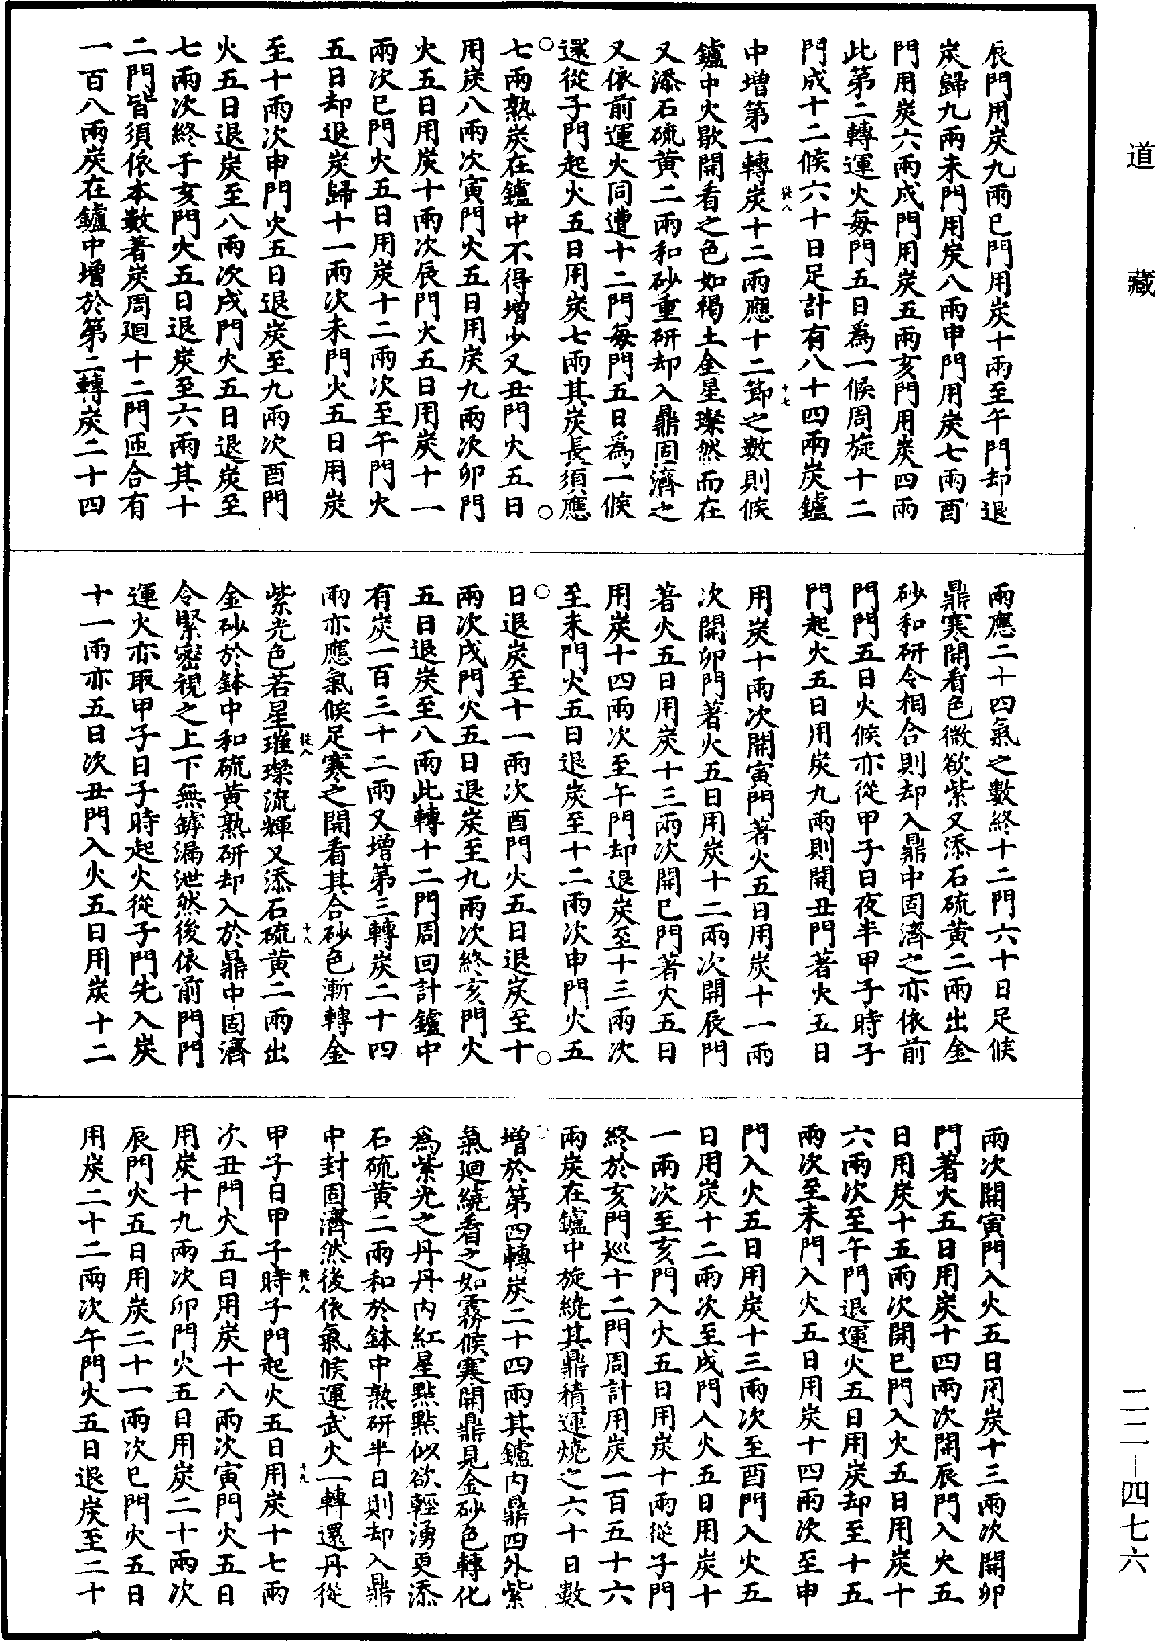 道藏
二二—四七六
辰門用炭九兩巳門用炭十兩至午門却退
炭歸九兩未門用炭八兩申門用炭七兩酉
門用炭六兩戌門用炭五兩亥門用炭四兩
此第二轉運火每門五日為一候周旋十二
門成十二候六十日足計有八十四兩炭鑪
中增第一轉炭十二兩應十二節之數則候
鑪中火歇開看之色如褐土金星璨然而在
又添石硫黃二兩和砂重研却入鼎固濟之
又依前運火同遭十二門每門五日為一候
還從子門起火五日用炭七兩其炭長須應
七兩熟炭在鑪中不得增少又丑門火五日
用炭八兩次寅門火五日用炭九兩次卯門
火五日用炭十兩次辰門火五日用炭十一
兩次巳門火五日用炭十二兩次至午門火
五日却退炭歸十一兩次未門火五日用炭
至十兩次申門火五日退炭至九兩次酉門
火五日退炭至八兩次戌門火五日退炭至
七兩次終于亥門火五日退炭至六兩其十
二門皆須依本數著炭周廻十二門匝合有
一百八兩炭在鑪中增於第二轉炭二十四
兩應二十四氣之數終十二門六十日足候
鼎寒開看色微欲紫又添石硫黃二兩出金
砂和研令相合則却入鼎中固濟之亦依前
門門五日火候亦從甲子日夜半甲子時子
門起火五日用炭九兩則開丑門著火五日
用炭十兩次開寅門著火五日用炭十一兩
次開卯門著火五日用炭十二兩次開辰門
著火五日用炭十三兩次開巳門著火五日
用炭十四兩次至午門却退炭至十三兩次
至未門火五日退炭至十二兩次申門火五
日退炭至十一兩次酉門火五日退炭至十
兩次戌門火五日退炭至九兩次終亥門火
五日退炭至八兩此轉十二門周回計鑪中
有炭一百三十二兩又增第三轉炭二十四
兩亦應氣候足寒之開看其合砂色漸轉金
紫光色若星璀璨流輝又添石硫黃二兩出
金砂於鉢中和硫黃熟研却入於鼎中固濟
令緊密視之上下無罅漏泄然後依前門門
運火亦取甲子日子時起火從子門先入炭
十一兩亦五日次丑門入火五日用炭十二
兩次開寅門入火五日用炭十三兩次開卯
門著火五日用炭十四兩次開辰門入火五
日用炭十五兩次開巳門入火五日用炭十
六兩次至午門退運火五日用炭却至十五
兩次至未門入火五日用炭十四兩次至申
門入火五日用炭十三兩次至酉門入火五
日用炭十二兩次至戌門入火五日用炭十
一兩次至亥門入火五日用炭十兩從子門
終於亥門巡十二門周計用炭一百五十六
兩炭在鑪中旋繞其鼎積運燒之六十日數
增於第四轉炭二十四兩其鑪內鼎四外紫
氣廻繞看之如霧候寒開鼎見金砂色轉化
為紫光之丹丹內紅星點點似欲輕湧更添
石硫黃二兩和於鉢中熟研半日則却入鼎
中封固濟然後依氣候運武火一轉還丹從
甲子日甲子時子門起火五日用炭十七兩
次丑門火五日用炭十八兩次寅門火五日
用炭十九兩次卯門火五日用炭二十兩次
辰門火五日用炭二十一兩次巳門火五日
用炭二十二兩次午門火五日退炭至二十